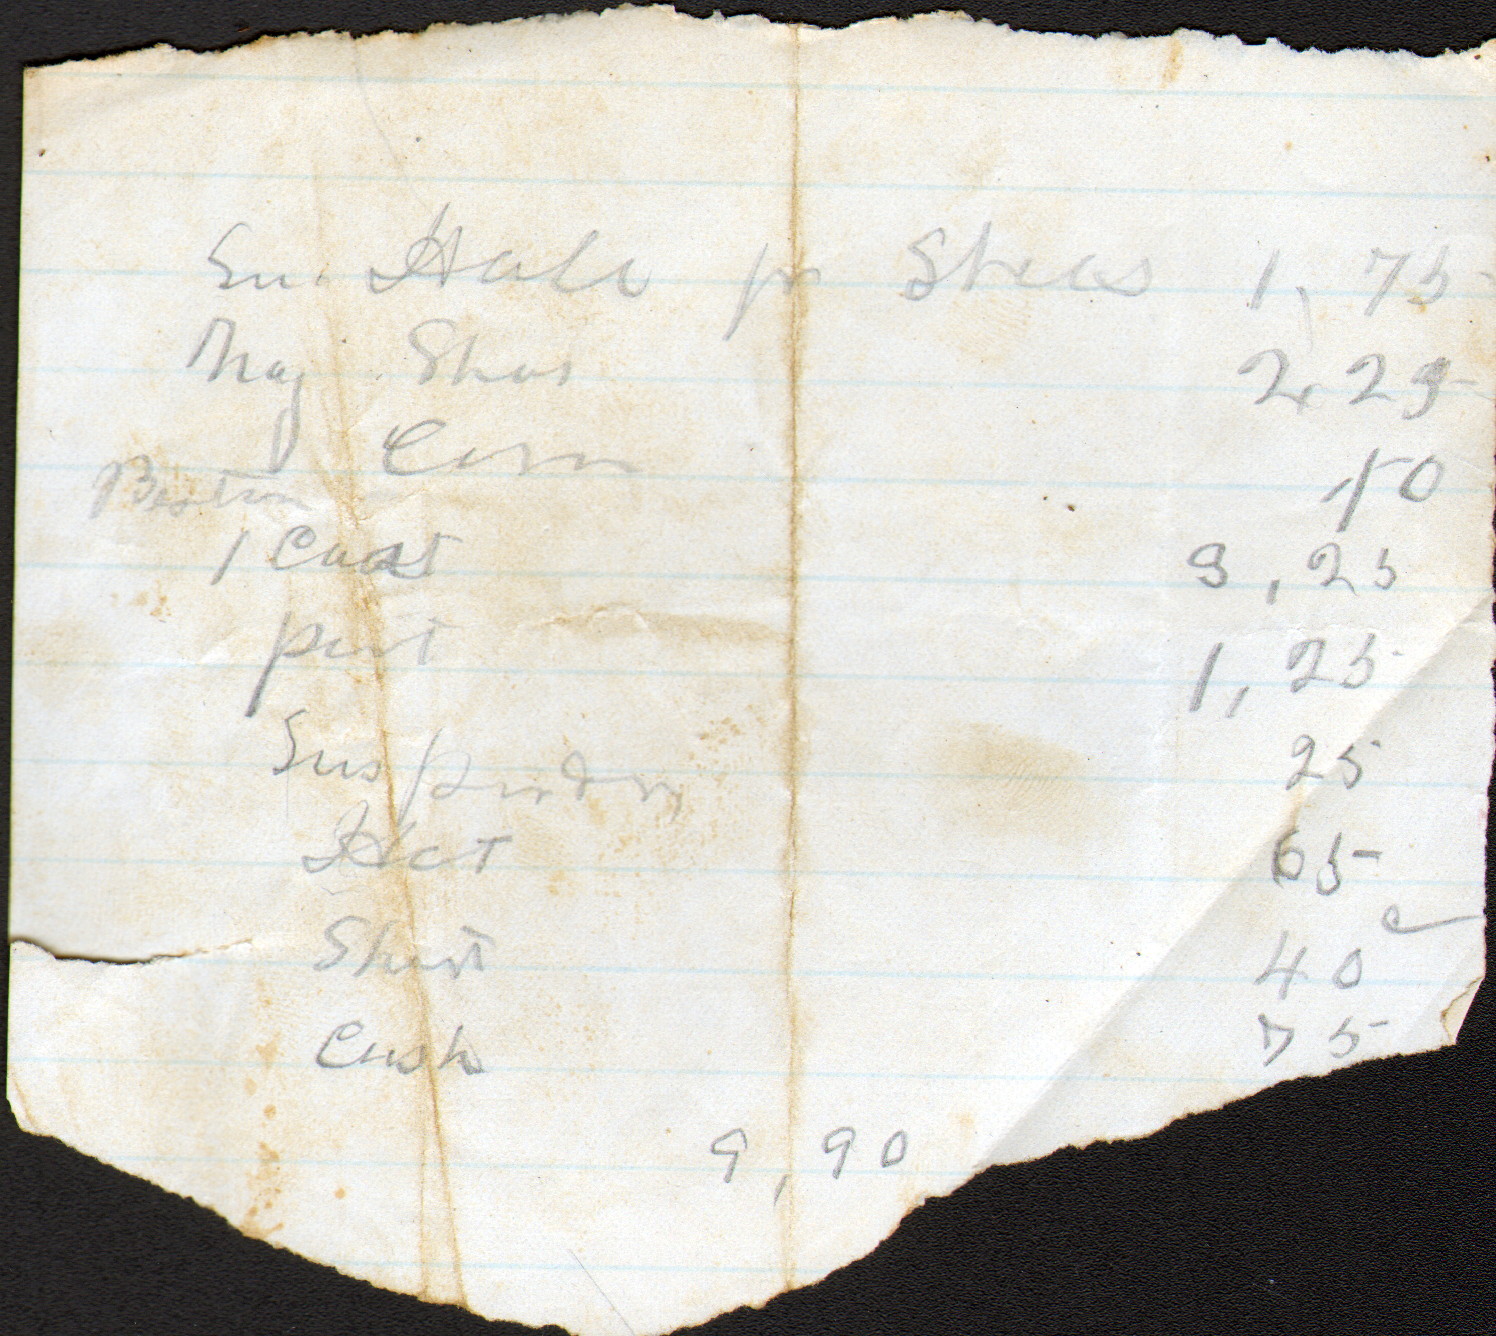 Hall for Shoes 1,75
May Shoes 2,25
Corn 10
1 Coat 3,25
pist 1,25
Suspenders 25
Hat 65
Shirt 40
Cash 75
9,90